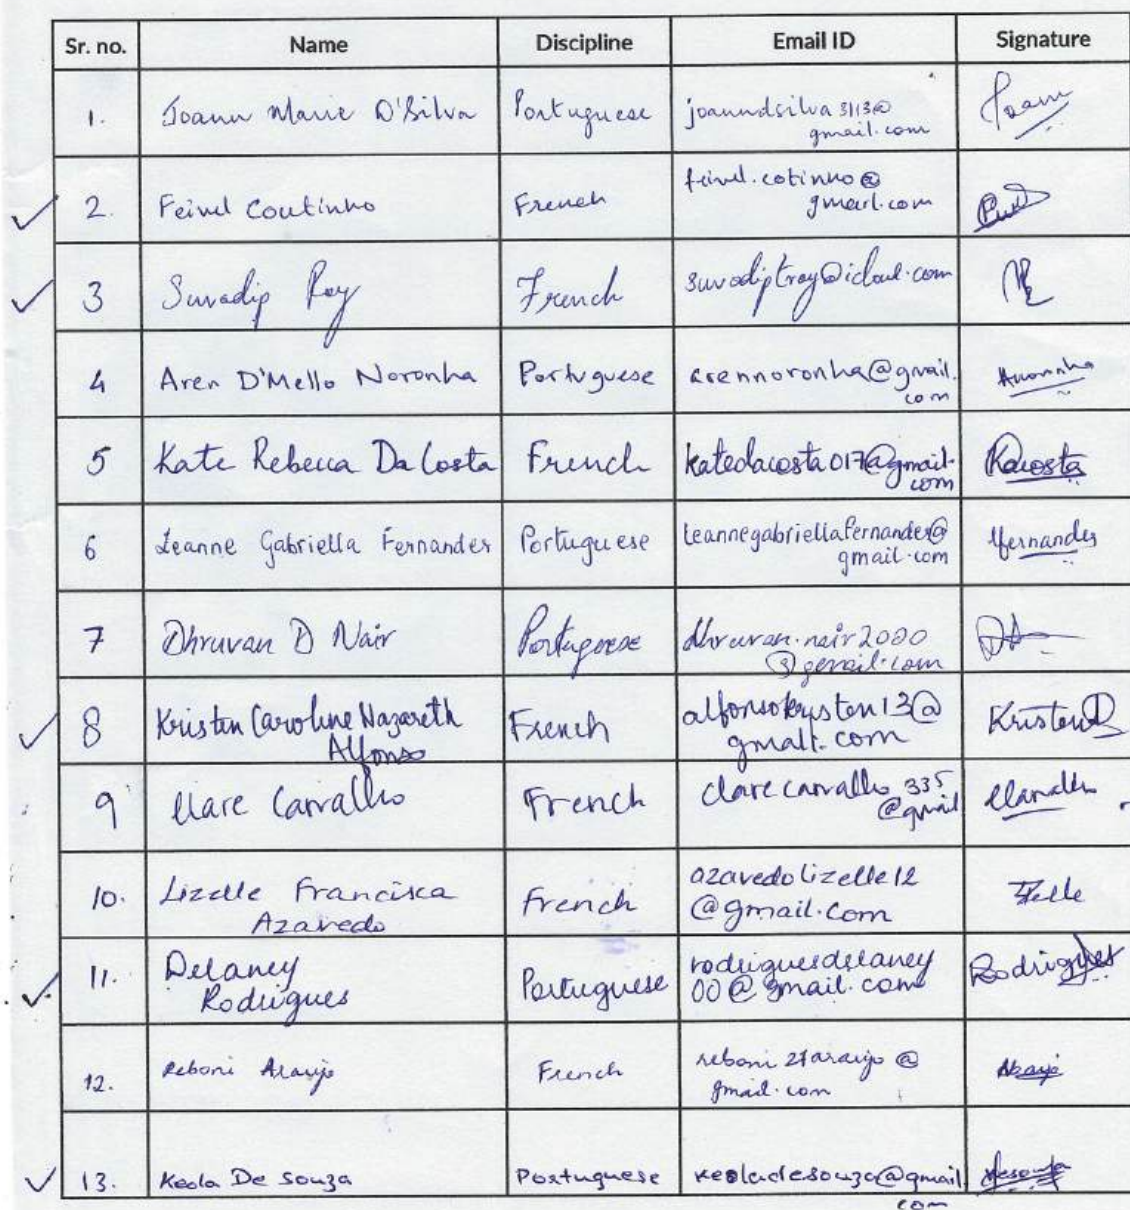 Sr. no. Name Discipline Email ID Signature
1. Joann Marie D'Silva Portuguese joanndsilva3113@
gmail.com
2. Feivel Coutinho French feivel.cotinho@
gmail.com
3 Suvadip Roy French suvadiptroy@icloud.com
4 Aren D'Mello Noronha Portuguese arennoronha@gmail.
com
5 Kate Rebecca Da Costa French katedacosta017@gmail.
com
6 Leanne Gabriella Fernandes Portuguese leannegabriellafernandes@
gmail.com
7 Dhruvan D Nair Portuguese dhruvan.nair2000
@gmail.com
8 Kristen Caroline Nazareth French alfonsokrysten13@ Kristen
Alfonso gmail.com
9 Clare Carvalho French clarecarvalho335
@gmail
10. Lizelle Francisca French azavedolizelle12
Azavedo @gmail.com
11. Delaney Portuguese rodriguesdelaney Rodrigues
Rodrigues 00@gmail.com
12. Reboni Araujo French reboni21araujo@
gmail.com
13. Keola De Souza Portuguese keoladesouza@gmail.
com